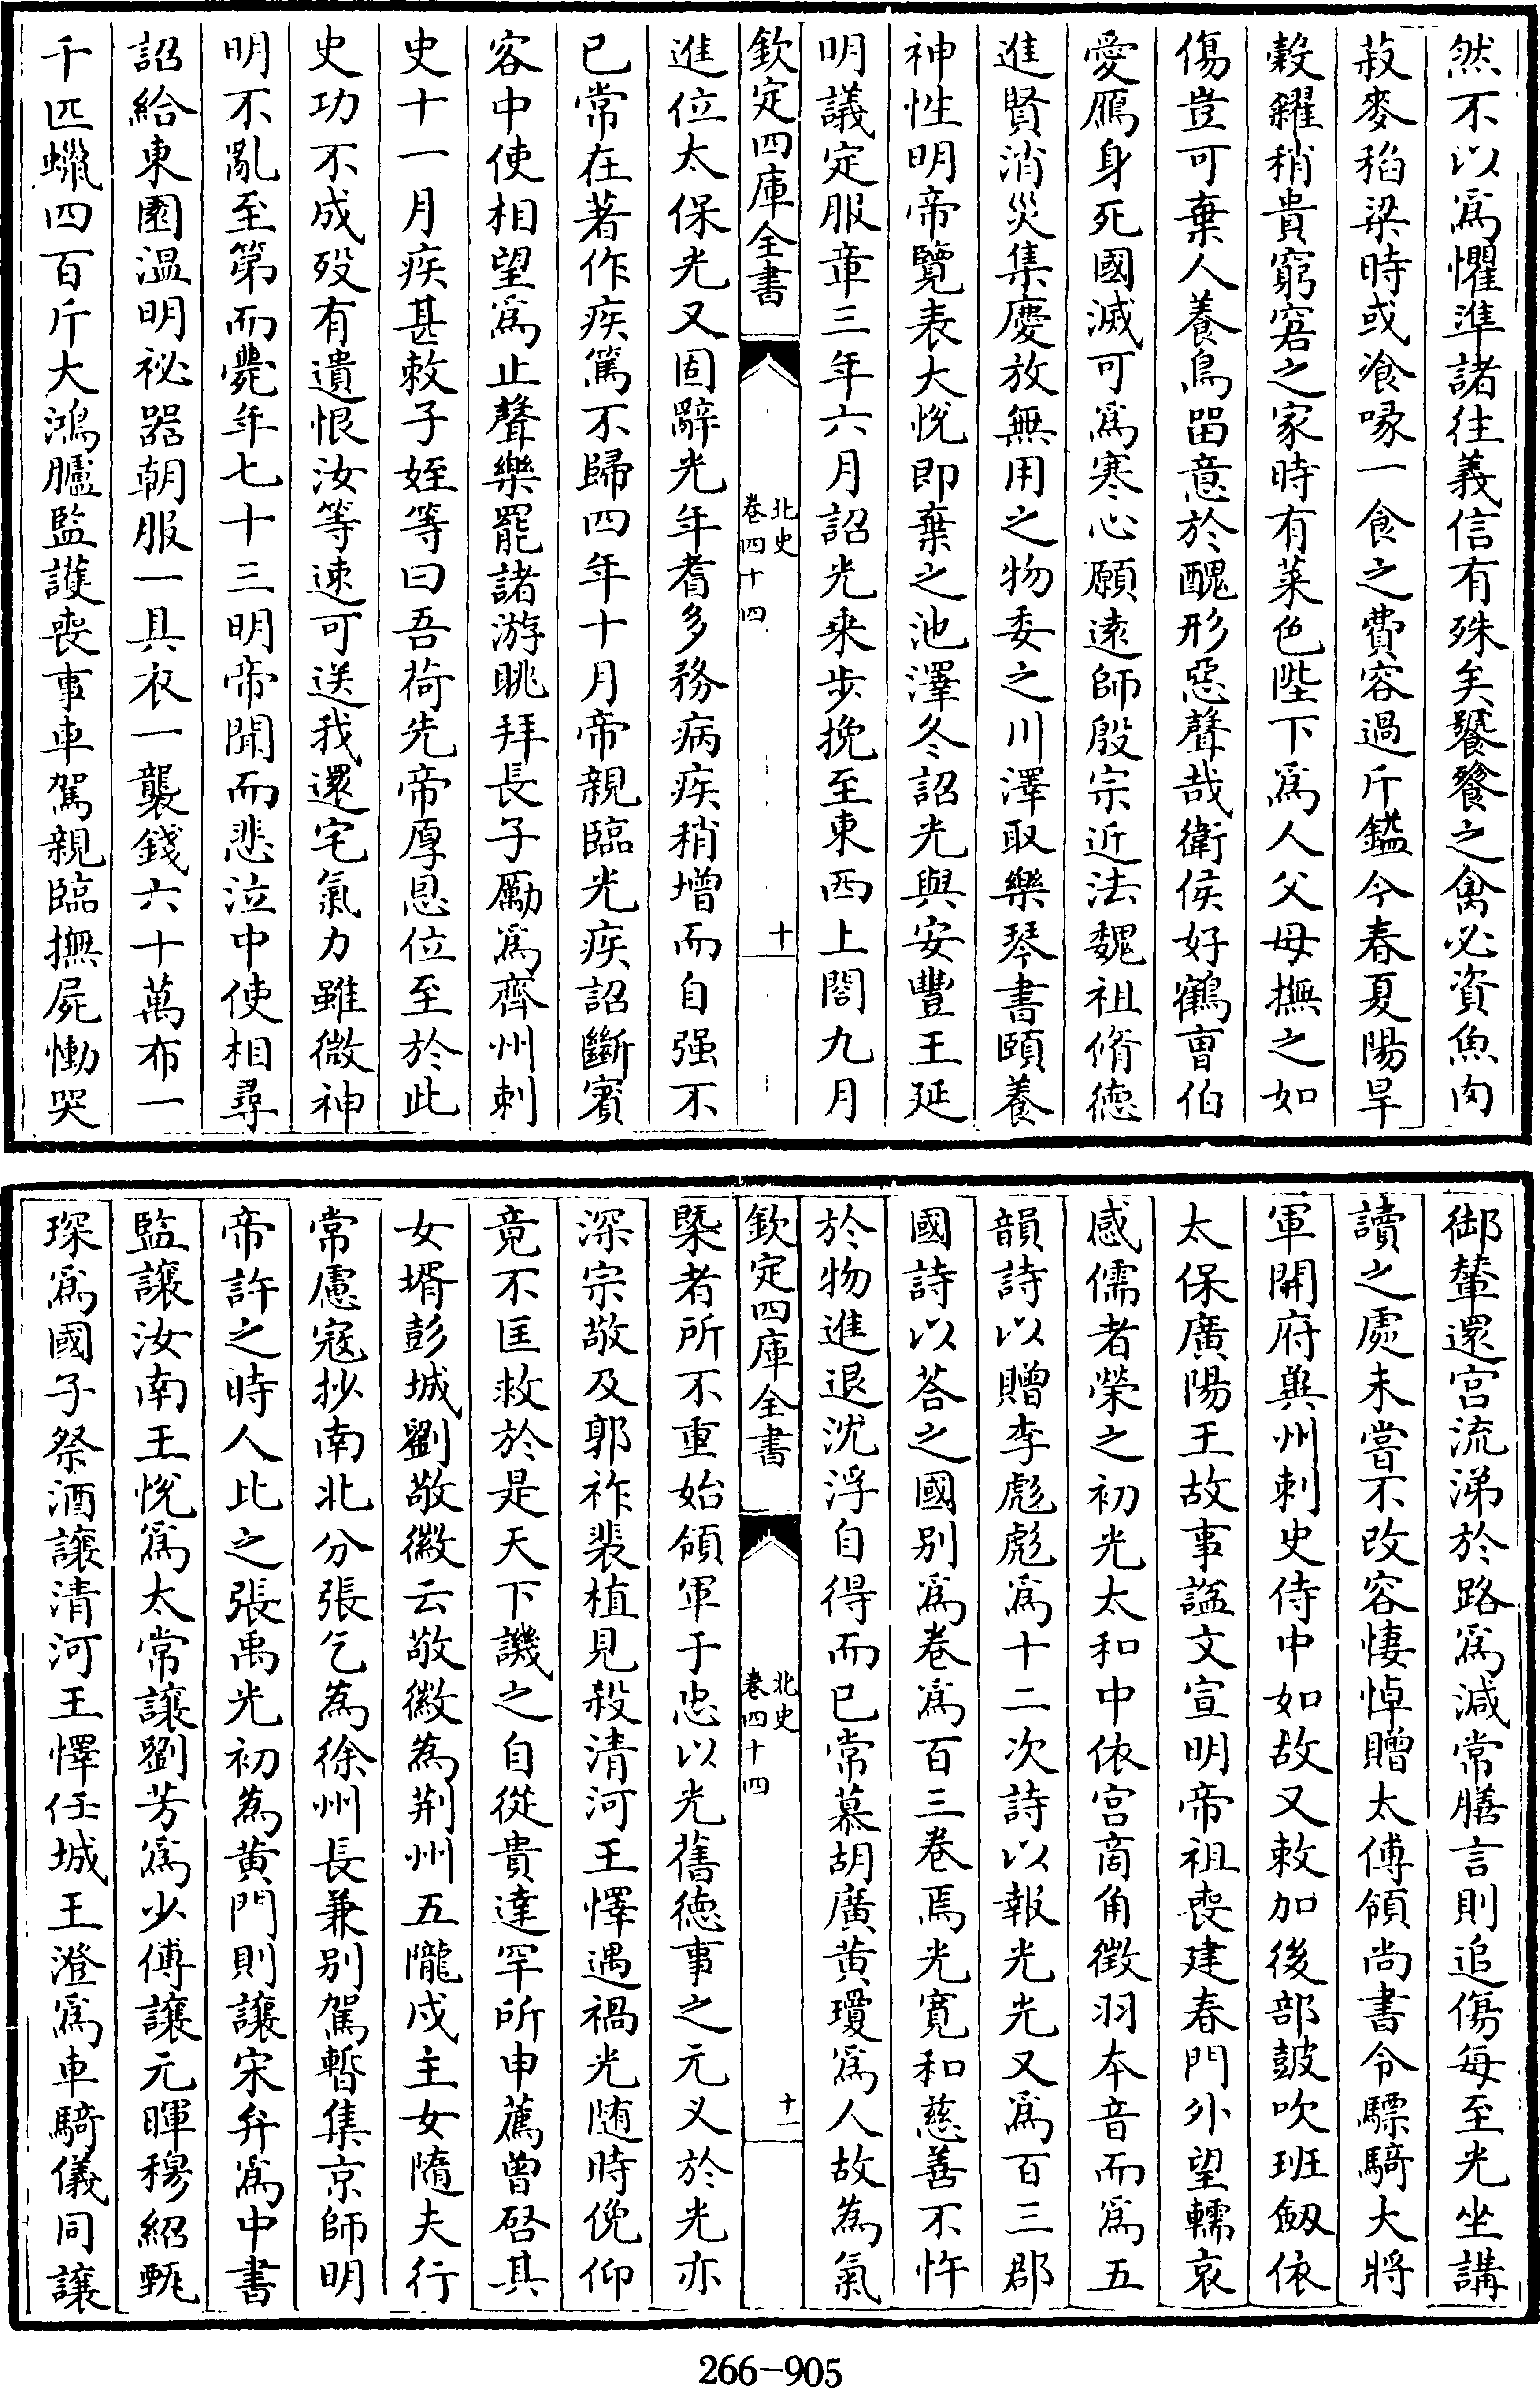 然不以為懼準諸往義信有殊矣饕餮之禽必資魚肉
菽麥稻粱時或飡啄一食之費容過斤鎰今春夏陽旱
穀糴稍貴窮窘之家時有菜色陛下為人父母撫之如
傷豈可棄人養鳥留意於醜形惡聲哉衛侯好鶴曹伯
愛鴈身死國滅可為寒心願逺師殷宗近法魏祖脩德
進賢消災集慶放無用之物委之川澤取樂琴書頤養
神性明帝覽表大悅即棄之池澤冬詔光與安豐王延
明議定服章三年六月詔光乗步挽至東西上閤九月
欽定四庫全書
北史
卷四十四
十
進位太保光又固辭光年耆多務病疾稍增而自强不
已常在著作疾篤不歸四年十月帝親臨光疾詔斷賓
客中使相望為止聲樂罷諸游眺拜長子勵為齊州刺
史十一月疾甚敕子姪等曰吾荷先帝厚恩位至於此
史功不成殁有遺恨汝等速可送我還宅氣力雖微神
明不亂至第而薨年七十三明帝聞而悲泣中使相尋
詔給東園溫明祕器朝服一具衣一襲錢六十萬布一
千匹蠟四百斤大鴻臚監護喪事車駕親臨撫屍慟哭
御輦還宫流涕於路為減常膳言則追傷每至光坐講
讀之處未嘗不改容悽悼贈太傅領尚書令驃騎大將
軍開府冀州刺史侍中如故又敕加後部鼓吹班劒依
太保廣陽王故事謚文宣明帝祖喪建春門外望轜哀
感儒者榮之初光太和中依宫商角徵羽本音而為五
韻詩以贈李彪彪為十二次詩以報光光又為百三郡
國詩以荅之國别為卷為百三卷焉光寛和慈善不忤
於物進退沈浮自得而已常慕胡廣黄瓊為人故為氣
欽定四庫全書
北史
卷四十四
十一
槩者所不重始領軍于忠以光舊德事之元义於光亦
深宗敬及郭祚裴植見殺清河王懌遇禍光随時俛仰
竟不匡救於是天下譏之自從貴達罕所申薦曾啓其
女壻彭城劉敬徽云敬徽為荆州五隴戍主女隨夫行
常慮寇抄南北分張乞為徐州長兼别駕暫集京師明
帝許之時人比之張禹光初為黄門則讓宋弁為中書
監讓汝南王悅為太常讓劉芳為少傅讓元暉穆紹甄
琛為國子祭酒讓清河王懌任城王澄為車騎儀同讓
266-905